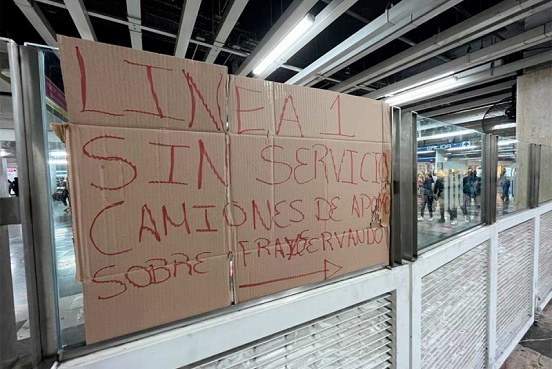 LINEA 1
SIN SERVICIO
CAMIONES DE APOYO
SOBRE FRAYSERVANDO